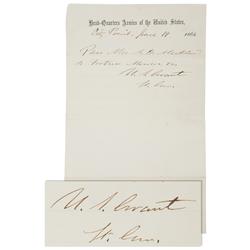 Head-Quarters Armies of the United States,
City Point, June 18 1864
Pass Mrs.
to Fortress Monroe Va
U. S. Grant
Lt. Gen.
U. S. Grant
Lt. Gen.